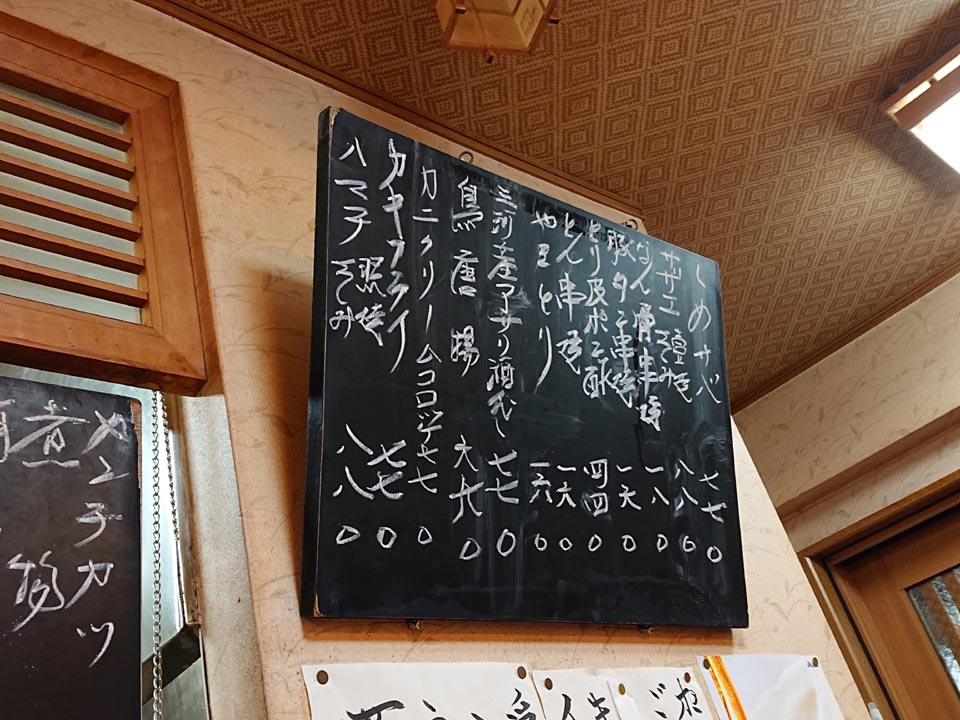 しめサバ 七七〇
サザエ 壺焼 さしみ 八八〇
なん骨串焼 一八〇
豚タン串焼 一六〇
とり皮ポン酢 四四〇
とん串焼 一六〇
やきとり 一六〇
三河産アサリ酒むし 七七〇
鳥唐揚 六九〇
カニクリームコロッケ 七七〇
カキフライ 七七〇
ハマチ 照焼 さしみ 八八〇
メンチカツ
煮
物